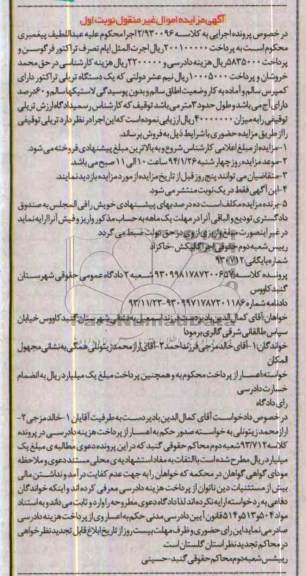 آگهی مزایده اموال غیر منقول نوبت اول
در خصوص پرونده اجرایی به کلاسه ۲/۹۳۰۰۹۶ اجرا محکوم علیه عبداللطیف پیغمبری
محکوم است به پرداخت ۲۰۰۱۰۰۰۰۰ ریال اجرت المثل ایام تصرف تراکتور فرگوسن و
پرداخت ۵۸۳۵۰۰۰ ریال هزینه دادرسی و ۲۲۰۰۰۰۰ ریال هزینه کارشناسی در حق محمد
خروشان و پرداخت ۱۰۰۰۵۰۰۰ ریال نیم عشر دولتی که یک دستگاه تریلی تراکتور دارای
کمپرس سالم و آماده به کار وضعیت اطاق سالم و بدون پوسیدگی لاستیکها سالم و ۶۰ درصد
دارای آج می باشد و طول حدود ۳ متر می باشد توقیف که کارشناس رسمی دادگاه ارزش تریلی
توقیفی را به میزان ۴۰۰۰۰۰۰۰ ریال ارزیابی نموده است که این اجرا در نظر دارد تریلی توقیفی
را از طریق مزایده حضوری با شرایط ذیل به فروش برساند.
۱-مزایده از مبلغ اعلامی کارشناس شروع و به بالاترین مبلغ پیشنهادی فروخته می شود.
۲-موعد مزایده روز چهارشنبه ۹۴/۱/۲۶ ساعت ۱۰ الی ۱۱ صبح می باشد.
۳-متقاضیان می توانند پنج روز قبل از تاریخ مزایده از مورد مزایده بازدید نمایند.
۴-این آگهی فقط در یک نوبت منتشر می شود.
۵-برنده مزایده مکلف است ده درصد بهای پیشنهادی خویش را فی المجلس به صندوق
دادگستری تودیع و الباقی آنرا در مهلت یک ماهه به حساب مذکور واریز و فیش آنرا ارایه نماید
در غیر اینصورت مبلغ واریزی از وی در حق دولت ضبط می گردد
رییس شعبه دوم حقوقی اجرا گالیکش-خاکزاد
شماره بایگانی ۹۳۰۷۱۲
پرونده کلاسه ۹۳۰۹۹۸۱۷۸۷۲۰۰۶۵۷ شعبه ۲ دادگاه عمومی حقوقی شهرستان
گنبدکاووس
دادنامه شماره ۹۳۰۹۹۷۱۷۸۷۲۰۱۱۸۶-۹۳/۱۱/۲۳
خواهان آقای کمال الدین بادپر فرزند اسمعیل به نشانی شهرستان گنبدکاووس خیابان
سپاس طالقانی شرقی گالری برمودا
خواندگان: ۱-آقای خالد مزجی فرزند احمد ۲-آقای آراز محمد زیتونلی همگی به نشانی مجهول
المکان
خواسته اعسار از پرداخت محکوم به و همچنین پرداخت مبلغ یک میلیارد ریال به انضمام
خسارت دادرسی
رای دادگاه
در خصوص دادخواست آقای کمال الدین بادپر بطرفیت آقایان ۱-خالد مزجی ۲-
آراز محمد زیتونلی به خواسته صدور حکم به اعسار از پرداخت هزینه دادرسی در پرونده
کلاسه ۹۳/۷۱۲ شعبه دوم محاکم حقوقی گنبد که در این پرونده دعوی مطالبه ی مبلغ یک
میلیارد ریال مطرح شده است با التفات به مفاد استشهادیه ی محلی مستند دعوی و ملاحظه
مودای گواهی گواهان در محکمه که خواهان را به جهت عدم کفایت درآمد و نداشتن مالی
بیش از مستثنیات دین ناتوان از پرداخت هزینه دادرسی معرفی کرده اند و اینکه خواندگان
دفاعی به رد خواسته ارایه نکرده اند لذا دادگاه دعوی مطروحه را وارد و ثابت می داند و به استناد
مواد ۵۰۴و۵۱۳و۵۱۴ قانون آیین دادرسی مدنی حکم به اعسار وی از پرداخت هزینه دادرسی
صادر می نماید این رای حضوری و ظرف مهلت بیست روز از تاریخ ابلاغ قابل تجدیدنظر خواهی
در محاکم تجدیدنظر استان گلستان است.
رییس شعبه دوم محاکم حقوقی گنبد-حسینی